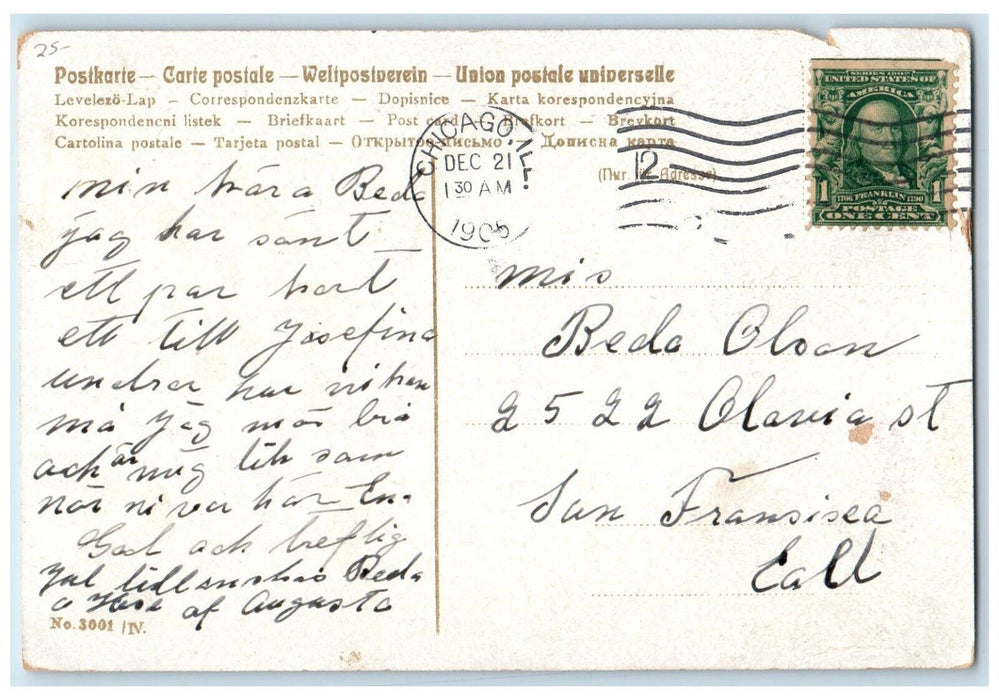 25-
Postkarte — Carte postale — Weltpostverein — Union postale universelle
Levelező-Lap — Correspondenzkarte — Dopisnice — Karta korespondencyjna
Korespondencni listek — Briefkaart — Post card — Brefkort — Brevkort
Cartolina postale — Tarjeta postal — Открытое письмо — Дописна карта
(Nur für Adresse)
CHICAGO, ILL.
DEC 21
1 30 AM
1905
12
SERIES 1902
UNITED STATES OF
AMERICA
1 1706 FRANKLIN 1790 1
POSTAGE
ONE CENT
min kära Beda
jag har sänt
ett par kort
ett till Josefina
undrar hur ni kan
må jag mår bra
och är mig lik som
när ni var här En
God och treflig
Jul tillönskas Beda
o Jose af Augusta
No. 3001 /IV.
Mis
Beda Olson
2522 Olavia st
San Fransisca
Call